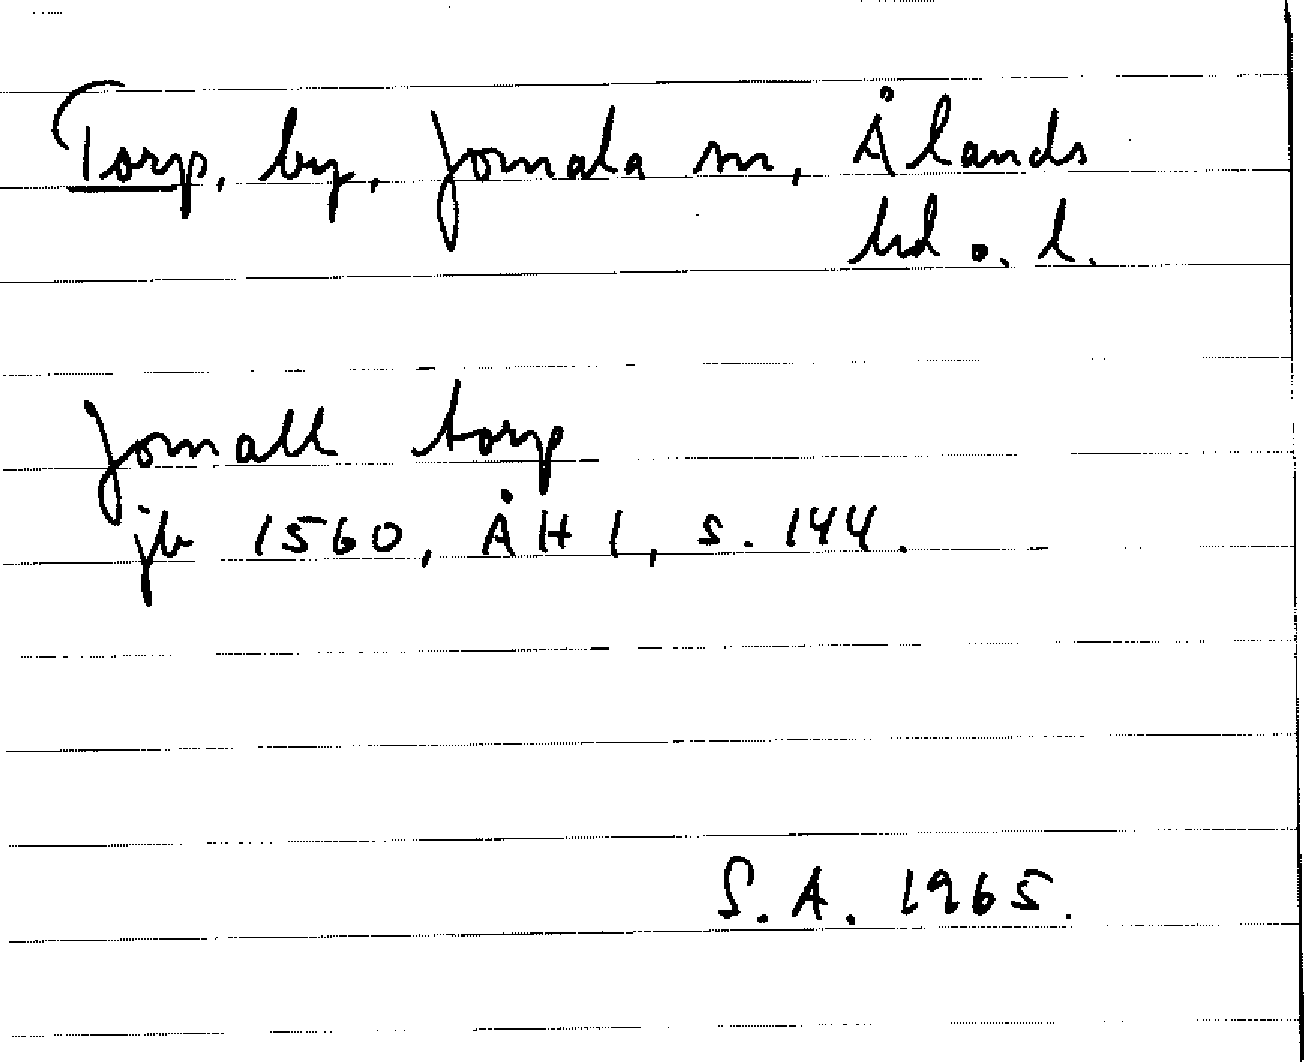 Torp, by, Jomala sn, Ålands
hd o. l.
Jomall torp
jb 1560, ÅH 1, s. 144.
S. A. 1965.